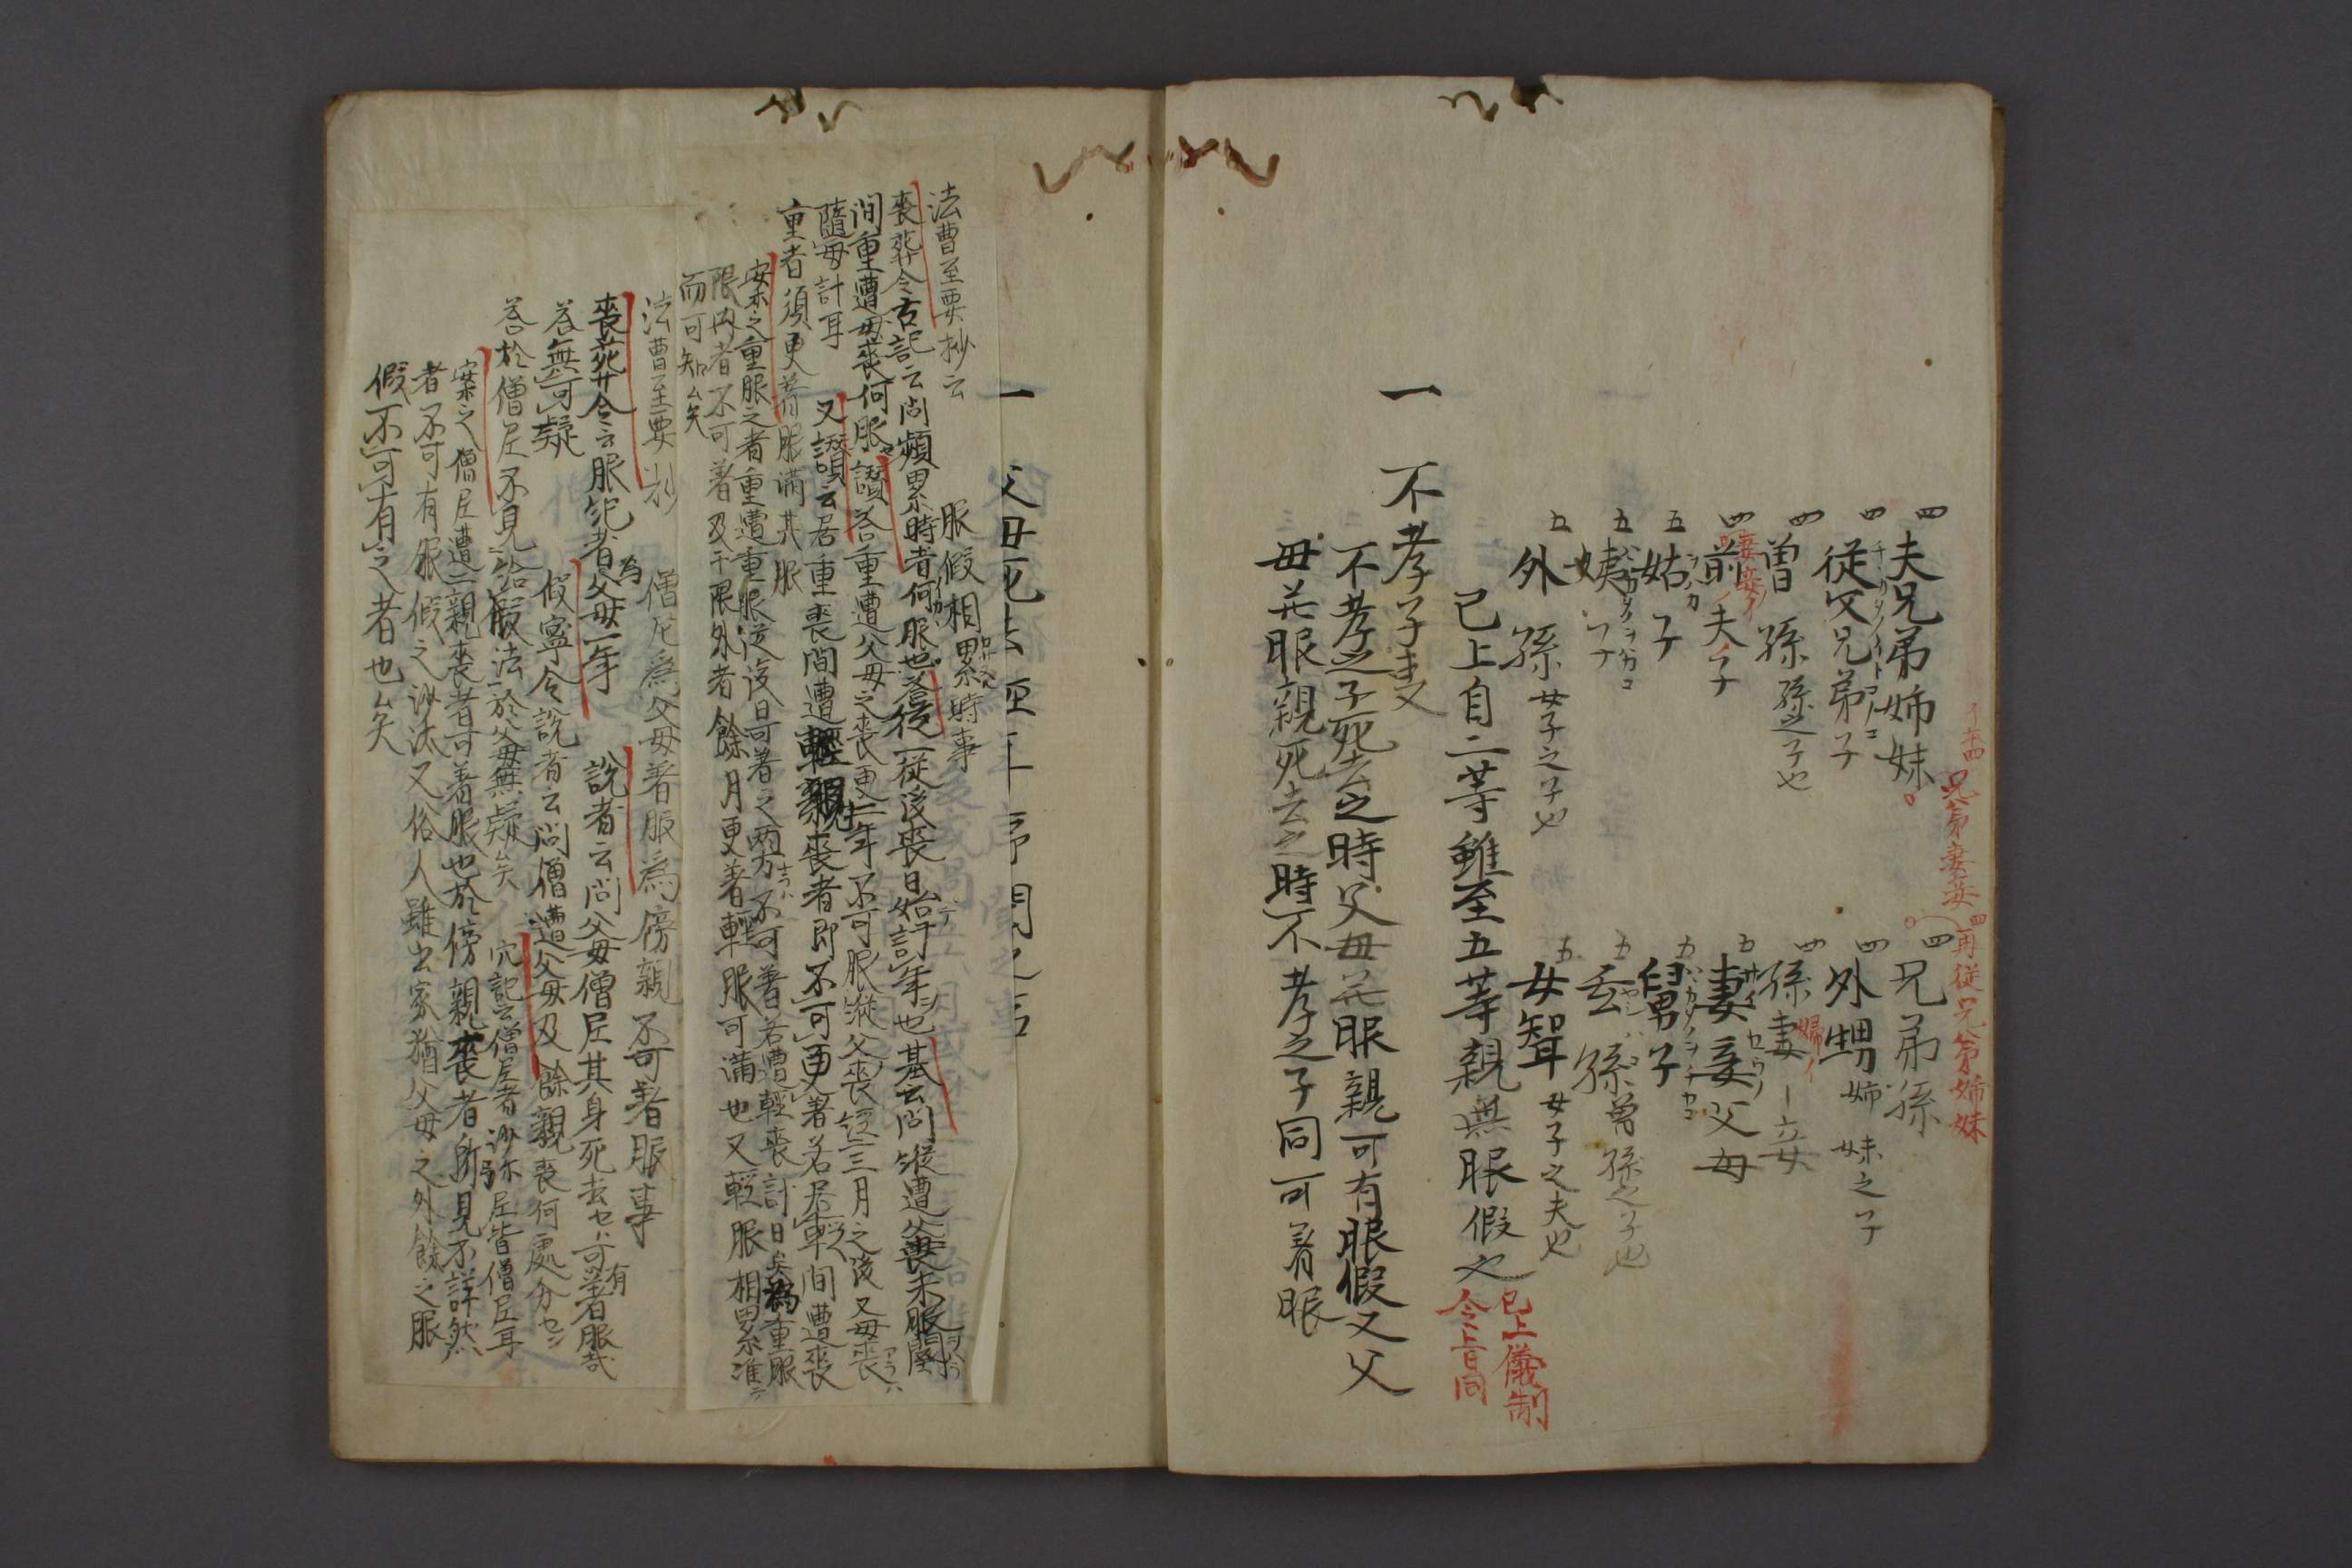 四 夫兄弟姉妹
四 兄弟孫
兄弟妻妾
四 再従兄弟姉妹
四 従父兄弟子
四 外甥 姉妹之子
四 曽孫 孫之子也
四 孫妻 妾
婦イ
四 前夫子
妻妾イ
五 妻妾父母
五 姑子
五 舅子
五 姨子
五 玄孫 曽孫之子也
五 外孫 女子之子也
五 女聟 女子之夫也
已上自二等雖至五等親無服假也
已上儀制
令上同
一 不孝子事
不孝之子死去之時父母并服親可有服假又父
母并服親死去之時不孝之子同可着服
一 父母死去
法曹至要抄云
服假相累時事
喪葬令古記云問頻累時者何服也答従一従後喪日始計年也基云問縦遭父喪未服闋
間重遭母喪何服讃答重遭父母之喪更一年不可服縦父喪三月之後又母喪
隨母計耳
又讃云居重喪間遭輕親喪者即不可更著若居輕間遭喪
重者須更着服満其服
案之重服之者重遭重服従後日可著之両方不可著若遭輕喪計日矣為重服
限内者不可著及于限外者餘月更著輕服可満也又輕服相累准
而可知矣
法曹至要抄
僧尼為父母著服為傍親不可著服事
喪葬令云服紀者為父母一年
説者云問父母僧尼其身死去可有著服哉
答無可疑
假寧令説者云問僧遭父母及餘親喪何處分
答於僧尼不見給假法於父母無疑矣
穴記云僧尼者沙弥尼皆僧尼耳
案之僧尼遭二親喪者可著服也於傍親喪者所見不詳然
者不可有服假之沙汰又俗人雖出家猶父母之外餘之服
假不可有之者也矣